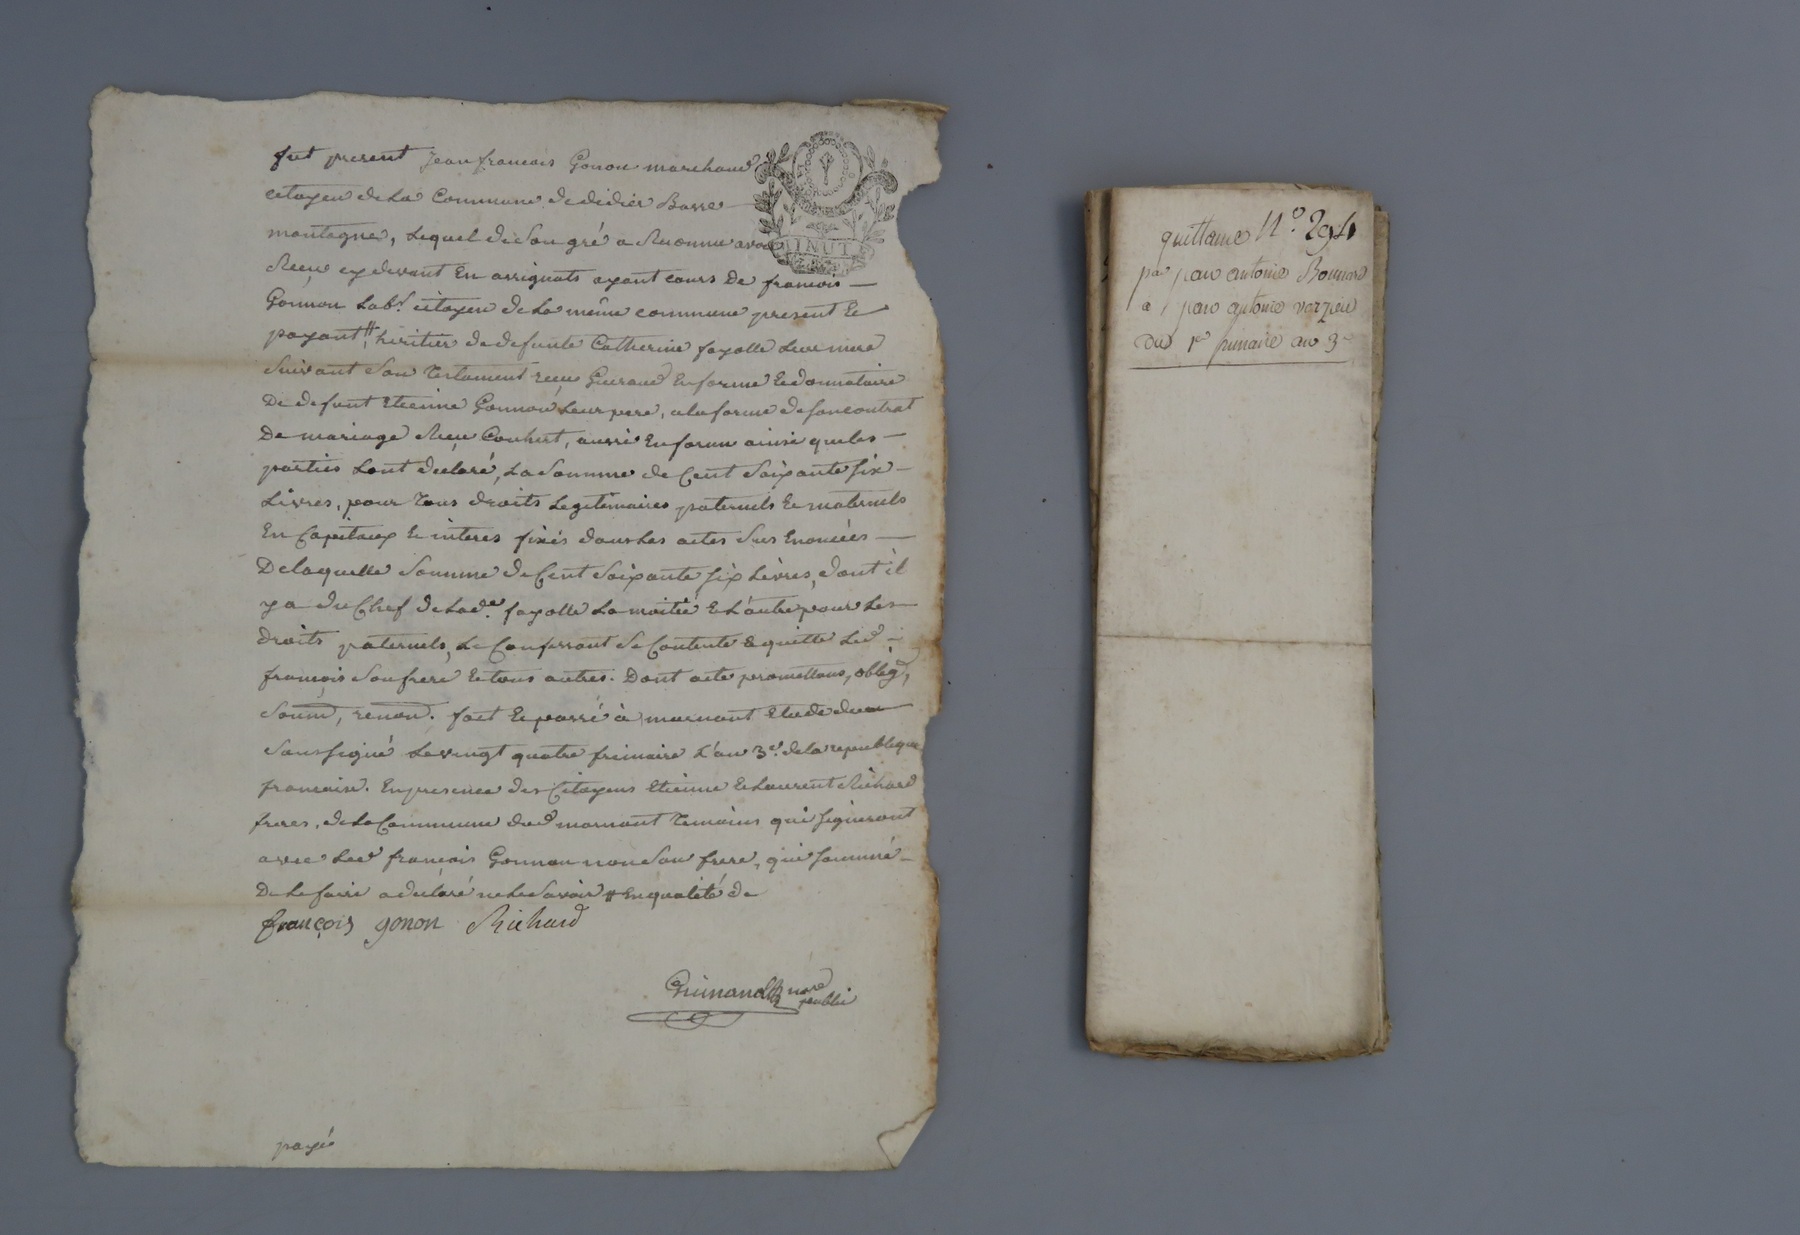 fut present jean francois Gonon marchand
citoyen de La Commune de didier Basse
montagne, Lequel de Son gré a Reconnu avoir
Reçu cy devant En assignats ayant cours De francois
Gonnon Labr. citoyen de La même commune present Et
payant # heritier de defunte Catherine fayolle Leur mere
Suivant Son Testament reçu Enforme Et donnataire
De defunt Etienne Gonnon Leur pere, a la forme de son contrat
De mariage Reçu aussi En forme ainsi que les
parties L'ont declaré, La Somme de Cent Soixante six
Livres, pour Tous droits Legitimaires paternels Et maternels
En Capitaux Et interes fixés dans Les actes Sus Enoncées
De laquelle Somme de Cent Soixante six Livres, dont il
y a du Chef de Lade. fayolle La moitié Et L'autre pour Les
droits paternels, Le Confessant Se Contente Et quitte Led
françois Son frere Et tous autres. Dont acte promettans, oblig,
Soum, renon. fait Et passé à mornant Etude du
Soussigné Le vingt quatre frimaire L'an 3e. de la republique
francaise. En presence des Citoyens Etienne Et Laurent Richard
freres, de La Commune dud mornant Temoins qui signeront
avec Led francois Gonnon non Son frere, qui sommé
De Le faire a declaré ne Le Savoir # En qualité de
françois gonon Richard
nore
public
payé
MINUT
quittance N.o 294
par jean antoine Bonnard
a jean antoine
Du 1er frimaire an 3e